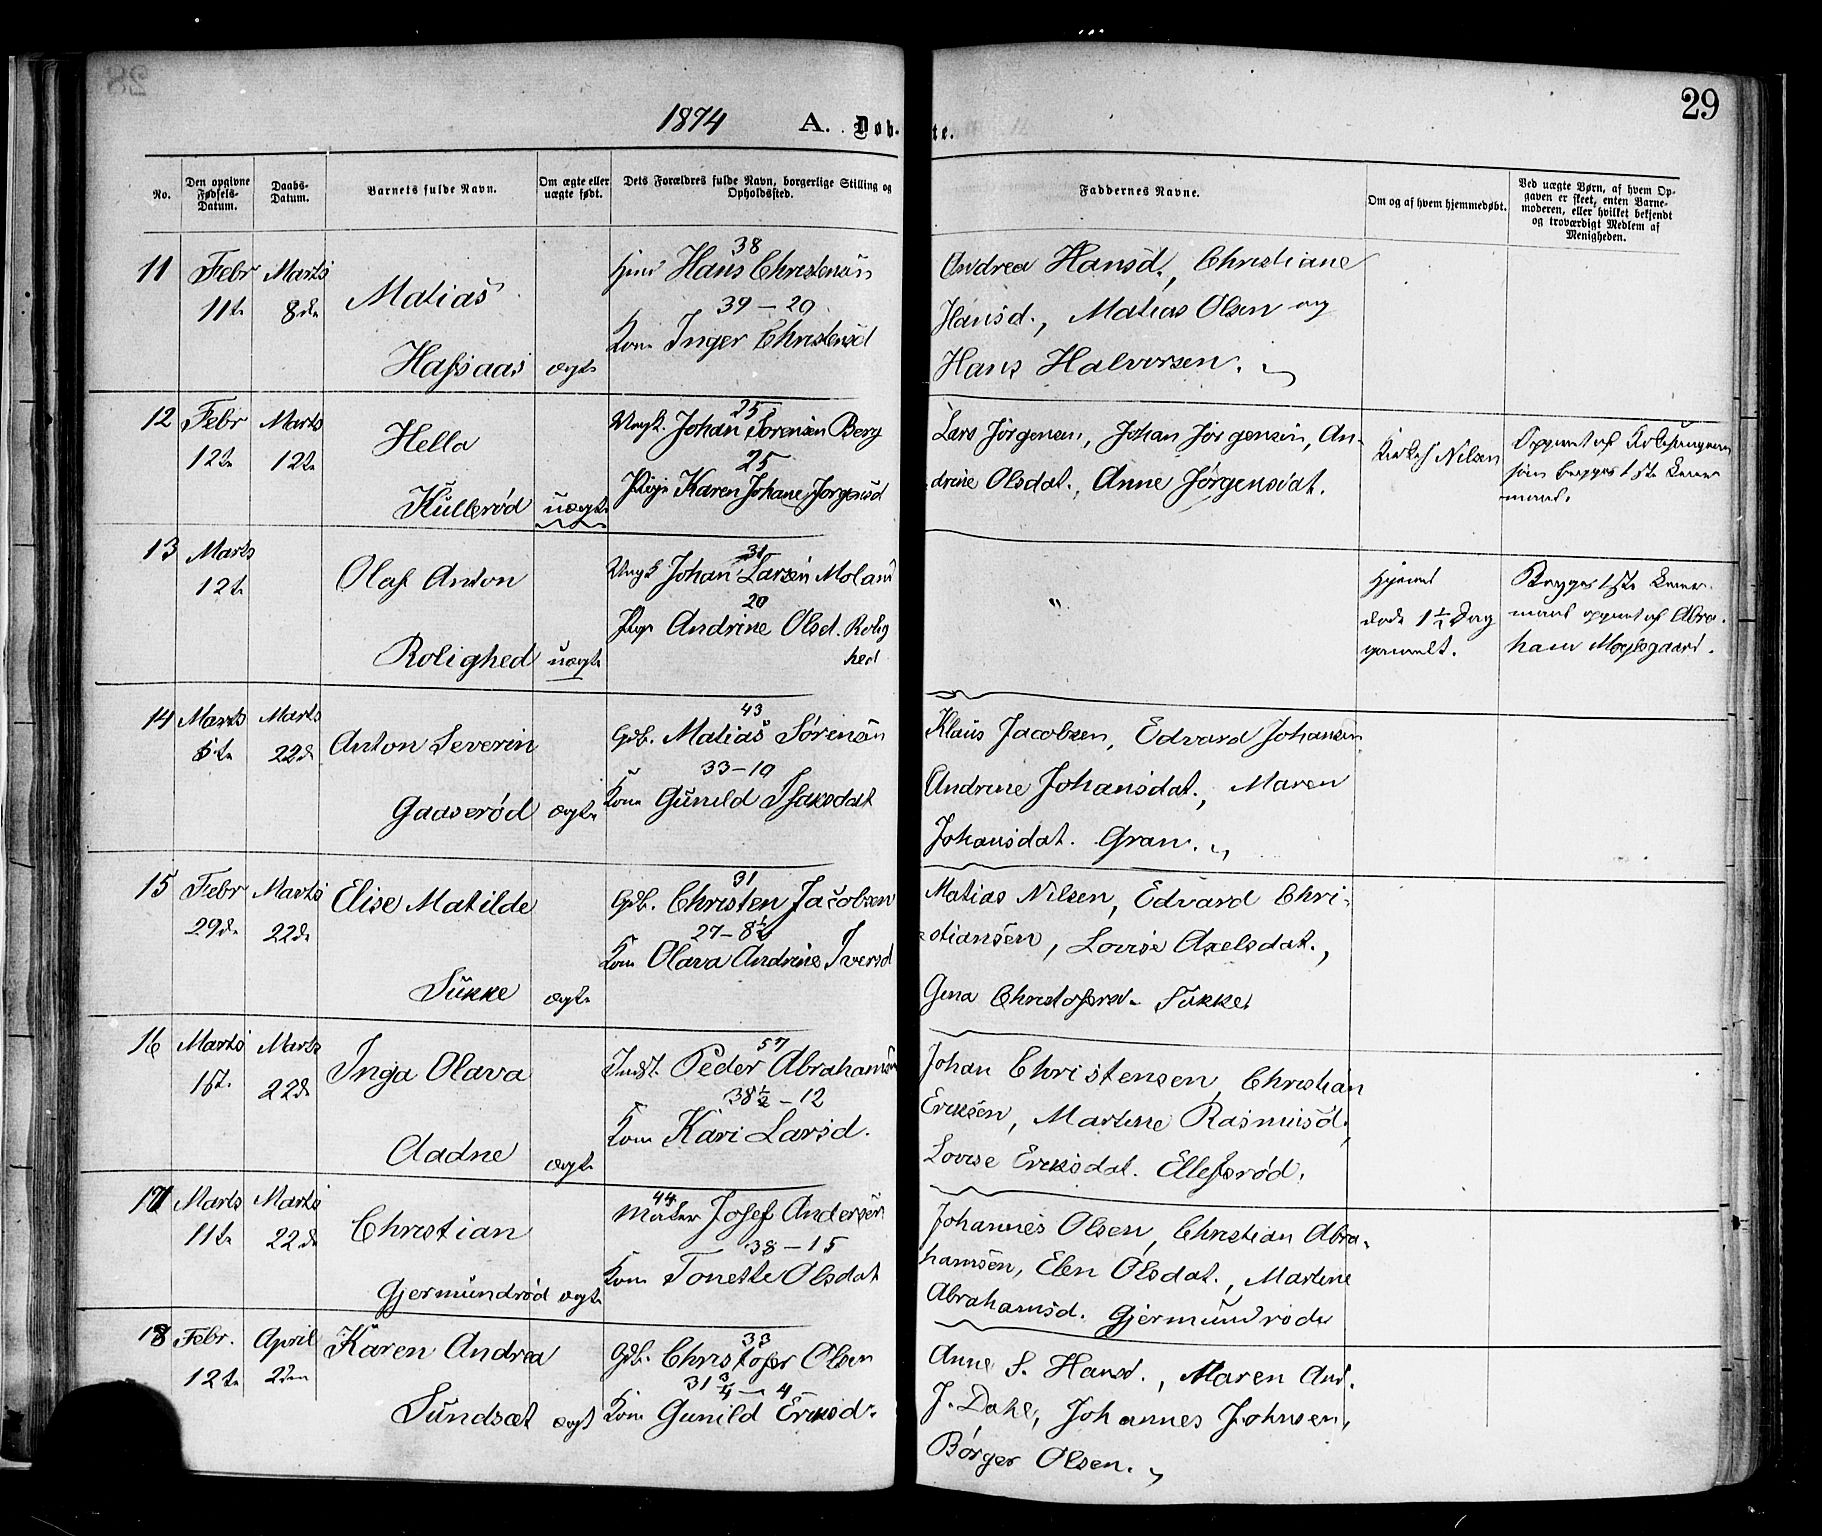 29
1874 A. Døb- te.
No.
Den opgivne Fødsels-Datum.
Daabs-Datum.
Barnets fulde Navn.
Om ægte eller uægte født.
Dets Forældres fulde Navn, borgerlige Stilling og Opholdssted.
Faddernes Navne.
Om og af hvem hjemmedøbt.
Ved uægte Børn, af hvem Opgaven er skeet, enten Barnemoderen, eller hvilket bekjendt og troværdigt Medlem af Menigheden.
38
11 Febr Marts Hans Christensøn Andrea Hansd., Christiane
11te 8de Matias 39 – 20 Hansd., Matias Olsen og
Kone Inger Christensd
Hafsaas ægte Hans Halvorsen.
25
12 Febr Marts Hella Ungk. Johan Sørensen Berg Lars Jørgensen, Johan Jørgensen, An-
12te 12te 25 drine Olsdat., Anne Jørgensdat. Nilsen
Kullerød uægte Pige Karen Johane Jørgensd
31
13 Marts Olaf Anton Ungk Johan Larsen Moland " Hjemmed
12te 20 døde 1½ Dag
Pige Andrine Olsd. Rolig gammelt.
Rolighed uægte hed
Begges 1ste Leier-
maal opgivet af Abra-
ham Moesgaard.
43
14 Marts Marts Anton Severin Gdb. Matias Sørensøn Klaus Jacobsen, Edvard Johansen
5te 22de 33 – 10 Andrine Johansdat., Maren
Gaaserød ægte Kone Gunild Isaksdat Johansdat. Gran.
31
15 Febr Marts Elise Matilde Gdb. Christen Jacobsen Matias Nilsen, Edvard Chri-
29de 22de 27 – 8½ stiansen, Lovise Axelsdat.,
Kone Olava Andrine Iversd
Sukke ægte Gina Christofersd. Sukke
57
16 Marts Marts Inga Olava Indst. Peder Abrahamsen Johan Christensen, Christian
1st. 22de 38½ – 12 Eriksen, Martine Rasmusd.,
Aadne ægte Kone Kari Larsd. Lovise Eriksdat. Ellefsrød.
44
17 Marts Marts Christian Josef Andersen Johannes Olsen, Christian Abra-
11te 22de 38 – 15 hamsen, Elen Olsdat., Martine
Gjermundrød ægte Kone Tonette Olsdat Abrahamsd. Gjermundrød
33
18 Febr. April Karen Andrea Gdb. Christofer Olsen Anne S. Hansd., Maren And.
12te 2den 31¾ – 4 J. Dahl, Johannes Johnsen,
Sundsæt ægt Kone Gunild Eriksd. Børger Olsen.